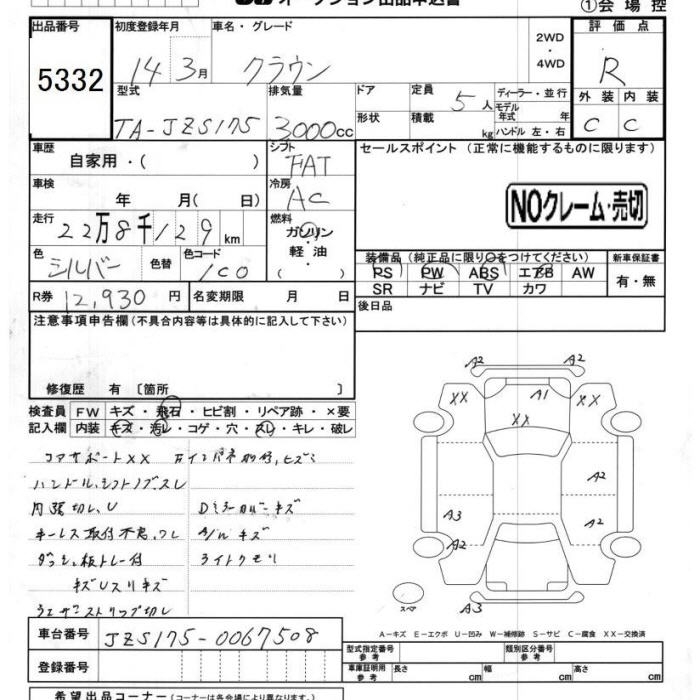 オークション出品申込書
①会場控
出品番号
5332
初度登録年月
14年3月
車名・グレード
クラウン
2WD
・
4WD
評価点
R
外装 内装
C C
型式
TA-JZS175
排気量
3000cc
ドア
形状
定員
5人
積載
kg
ディーラー・並行
モデル
年式 年
ハンドル 左・右
車歴
自家用・( )
シフト
FAT
セールスポイント (正常に機能するものに限ります)
車検
年 月( 日)
冷房
AC
NOクレーム・売切
走行
22万8千129km
燃料
ガソリン
軽油
( ・ )
色
シルバー
色替
色コード
1C0
装備品 (純正品に限り○をつけてください)
PS PW ABS エアB AW
SR ナビ TV カワ
新車保証書
有・無
R券 12,930円
名変期限 月 日
後日品
注意事項申告欄 (不具合内容等は具体的に記入して下さい)
修復歴 有 〔箇所 〕
検査員
記入欄
FW キズ・飛石・ヒビ割・リペア跡・×要
内装 キズ・汚レ・コゲ・穴・スレ・キレ・破レ
コアサポートXX
ハンドル、シフトノブスレ
内張切レ、U
Dミラーカバーキズ
キーレス取付不良、ワレ
A/W キズ
ライトクモリ
キズUスリキズ
ウェザーストリップ切レ
A2 A2
XX A1 XX
XX
A2
A3 A2
A2
スペア
A3
A－キズ E－エクボ U－凹み W－補修跡 S－サビ C－腐食 XX－交換済
車台番号 JZS175-0067508
登録番号
型式指定番号
参考
類別区分番号
参考
車庫証明用
参考
長さ cm 幅 cm 高さ cm
希望出品コーナー (コーナーは各会場により異なります)